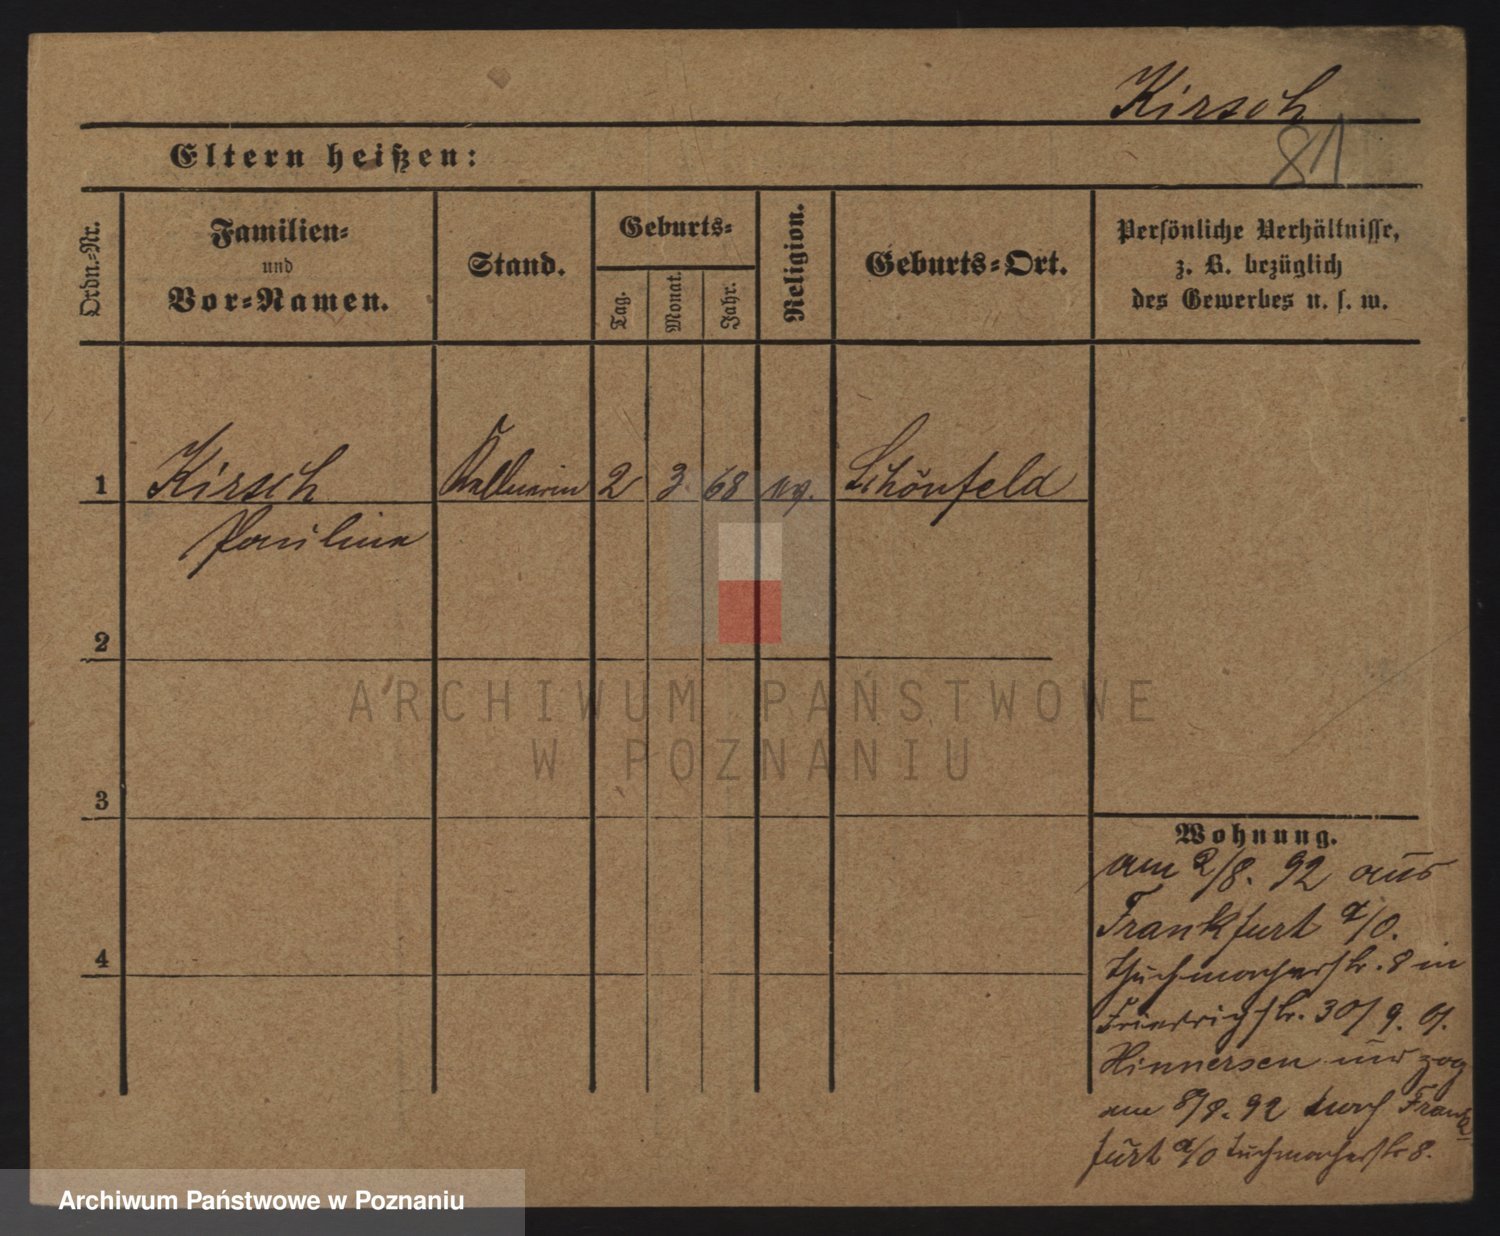 Kirsch
81
Eltern heißen:
Ordn.-Nr.
Familien-
und
Vor-Namen.
Stand.
Geburts-
Tag.
Monat.
Jahr.
Religion.
Geburts-Ort.
Persönliche Verhältnisse,
z. B. bezüglich
des Gewerbes u. s. w.
1 Kirsch Kellnerin 2 3. 68 ev. Schönfeld
Pauline
2
3
4
ARCHIWUM PAŃSTWOWE
W POZNANIU
Wohnung.
am 2/8. 92 aus
Frankfurt a/O.
Tuchmacherstr. 8 in
Friedrichstr. 30/
Hinnersen und zog
am 92 nach Frank-
furt a/O Tuchmacherstr 8.
Archiwum Państwowe w Poznaniu